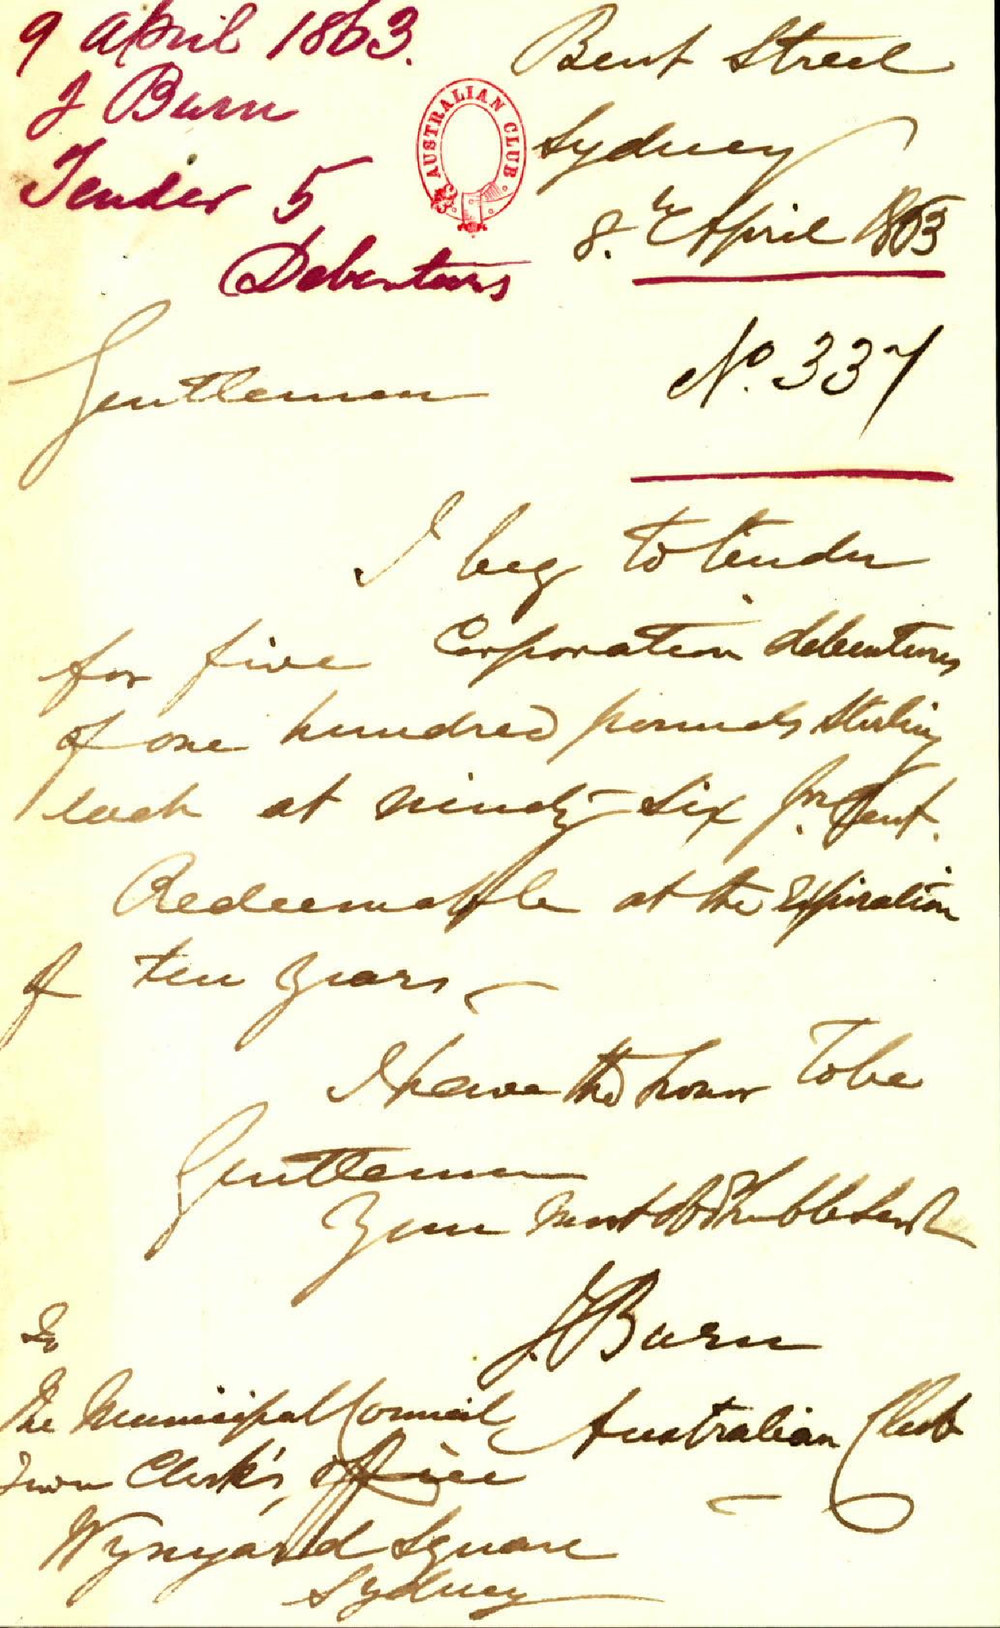 9 April 1863.
J Burn
Tender 5
Debentures
AUSTRALIAN CLUB
Bent Street
Sydney
8.th April 1863
No. 337
Gentlemen
I beg to tender
for five Corporation debentures
of one hundred pounds Sterling
each at ninety six pr. Cent.
Redeemable at the expiration
of ten years
I have the honor to be
Gentlemen
Your Most Obt Humble Servt
J. Burn
Australian Club
To
The Municipal Council
Town Clerk's office
Wynyard Square
Sydney